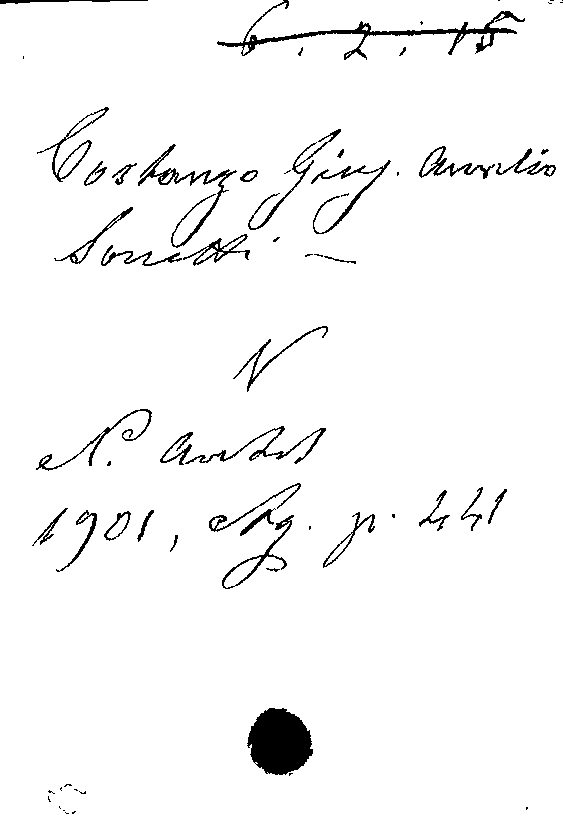 6. 2. 15
Costanzo Gius. Aurelio
Sonetti —
N
N. Antol
1901, Mg. p. 441